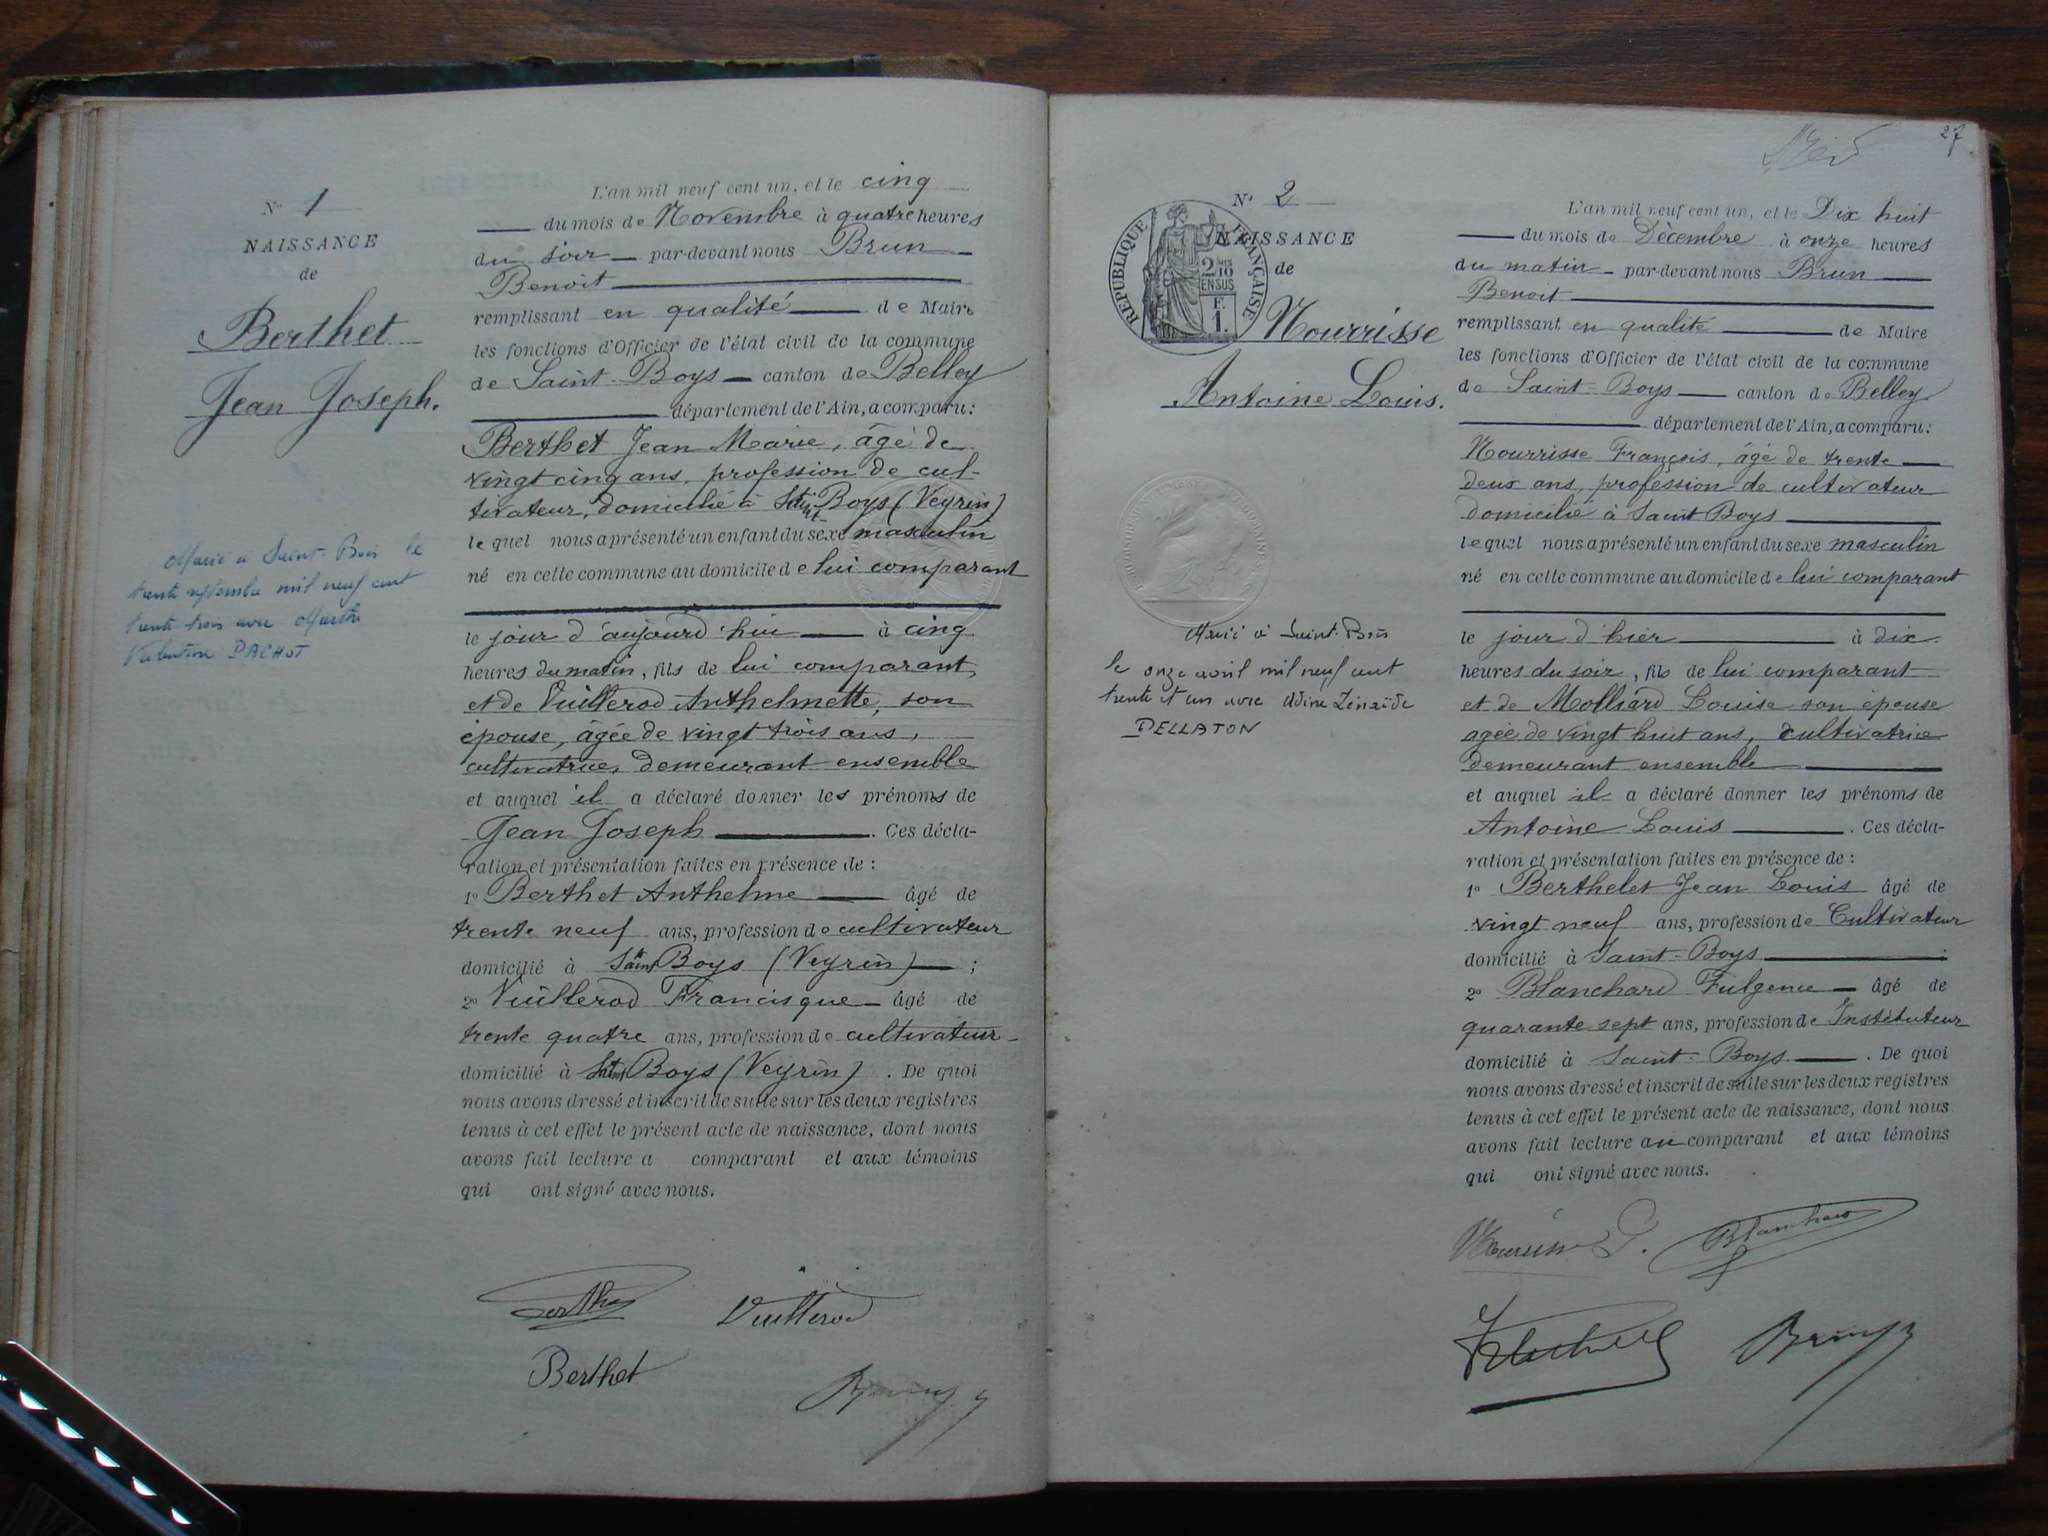 N° 1
NAISSANCE
de
Berthet
Jean Joseph.
Marié à Saint-Bois le
trente septembre mil neuf cent
trente trois avec Marthe
Valentine PACHOT
L'an mil neuf cent un, et le cinq
du mois de Novembre à quatre heures
du soir par-devant nous Brun
Benoit
remplissant en qualité de Maire
les fonctions d'Officier de l'état civil de la commune
de Saint-Boys canton de Belley
département de l'Ain, a comparu:
Berthet Jean Marie, âgé de
vingt cinq ans, profession de cul-
tivateur, domicilié à Saint Boys (Veyrin)
le quel nous a présenté un enfant du sexe masculin
né en cette commune au domicile de lui comparant
le jour d'aujourd'hui à cinq
heures du matin, fils de lui comparant
et de Vuillerod Anthelmette, son
épouse, âgée de vingt trois ans,
cultivatrice, demeurant ensemble
et auquel il a déclaré donner les prénoms de
Jean Joseph . Ces décla-
ration et présentation faites en présence de :
1° Berthet Anthelme âgé de
trente neuf ans, profession de cultivateur
domicilié à Saint Boys (Veyrin) ;
2° Vuillerod Francisque âgé de
trente quatre ans, profession de cultivateur
domicilié à Saint Boys (Veyrin) . De quoi
nous avons dressé et inscrit de suite sur les deux registres
tenus à cet effet le présent acte de naissance, dont nous
avons fait lecture a comparant et aux témoins
qui ont signé avec nous.
Vuillerod
Berthet
Brun
27
N° 2
RÉPUBLIQUE FRANÇAISE
2/10 EN SUS
F. 1.
NAISSANCE
de
Nourrisse
Antoine Louis.
Marié à Saint-Bois
le onze avril mil neuf cent
trente et un avec Adine Zénaïde
PELLATON
L'an mil neuf cent un, et le Dix huit
du mois de Décembre à onze heures
du matin par-devant nous Brun
Benoit
remplissant en qualité de Maire
les fonctions d'Officier de l'état civil de la commune
de Saint-Boys canton de Belley
département de l'Ain, a comparu:
Nourrisse François, âgé de trente
deux ans, profession de cultivateur
domicilié à Saint Boys
le quel nous a présenté un enfant du sexe masculin
né en cette commune au domicile de lui comparant
le jour d'hier à dix
heures du soir, fils de lui comparant
et de Molliard Louise son épouse
agée de vingt huit ans, cultivatrice
demeurant ensemble
et auquel il a déclaré donner les prénoms de
Antoine Louis . Ces décla-
ration et présentation faites en présence de :
1° Berthelet Jean Louis âgé de
vingt neuf ans, profession de Cultivateur
domicilié à Saint-Boys ;
2° Blanchard Fulgence âgé de
quarante sept ans, profession de Instituteur
domicilié à Saint-Boys . De quoi
nous avons dressé et inscrit de suite sur les deux registres
tenus à cet effet le présent acte de naissance, dont nous
avons fait lecture au comparant et aux témoins
qui ont signé avec nous.
Blanchard
Brun